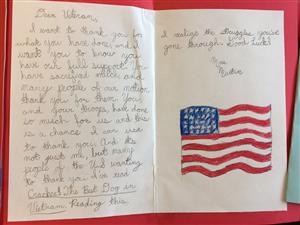 Dear Veteran,
I want to thank you for
what you have done, and I
want you to know you
have our full support. You
have sacrificed much, and
many people of our nation
thank you for them. You
and your troops, have done
so much for us and this
is a chance I can use
to thank you. And it's
not just me, but many
people of the U.S wanting
to thank you. I've read
Cracker! The Best Dog in
Vietnam. Reading this,
I realize the struggles you've
gone through. Good Luck!